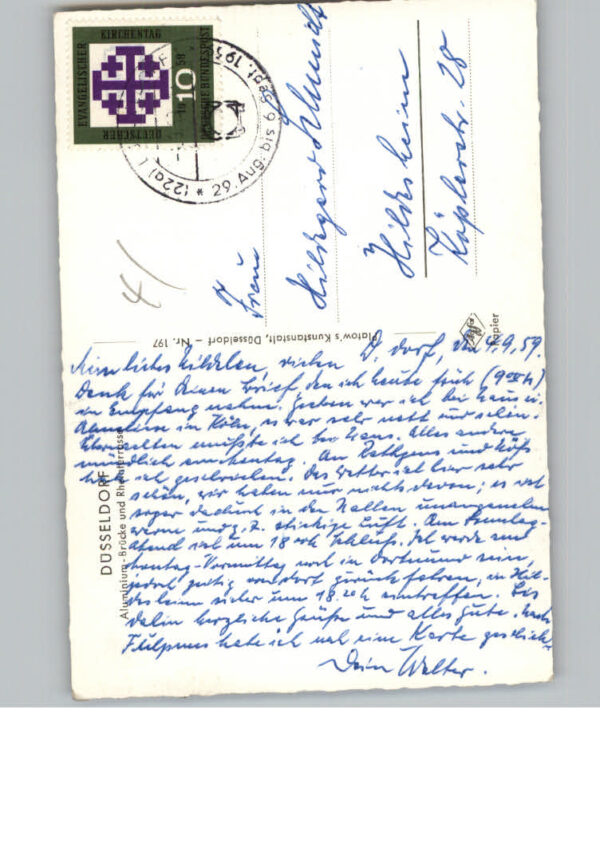 DEUTSCHER
EVANGELISCHER
KIRCHENTAG
DEUTSCHE BUNDESPOST
10
(22a)
* 29. Aug. bis 6. Sept. 19
4/
Frau
Hildegard
Hildesheim
Käplerstr. 28
Platow's Kunstanstalt, Düsseldorf – Nr. 197
Papier
DÜSSELDORF
Aluminium-Brücke und Rheinterrasse
D'dorf, den 4.9.59.
Mein liebes vielen
Dank für Deinen Brief, den ich heute früh (9 00 h)
in Empfang nahm. Gestern war ich bei Haus in
in Köln, es war sehr nett und
mußte ich bei Alles andere
mündlich Sonntag. An und
habe ich geschrieben. Das Wetter ist hier sehr
schön, wir haben nur nichts davon; es ist
sogar dadurch in den Hallen unangenehm
warm und stickige Luft. Am Sonntag-
abend ist um 18 00 h Schluß. Ich werde am
Montag-Vormittag noch in Dortmund sein,
jedoch zeitig von dort zurückfahren, in Hil-
desheim sicher um 18.20 h eintreffen. Bis
dahin herzliche Grüße und alles Gute. Nach
Fulpmes habe ich noch eine Karte geschickt.
Dein Walter.